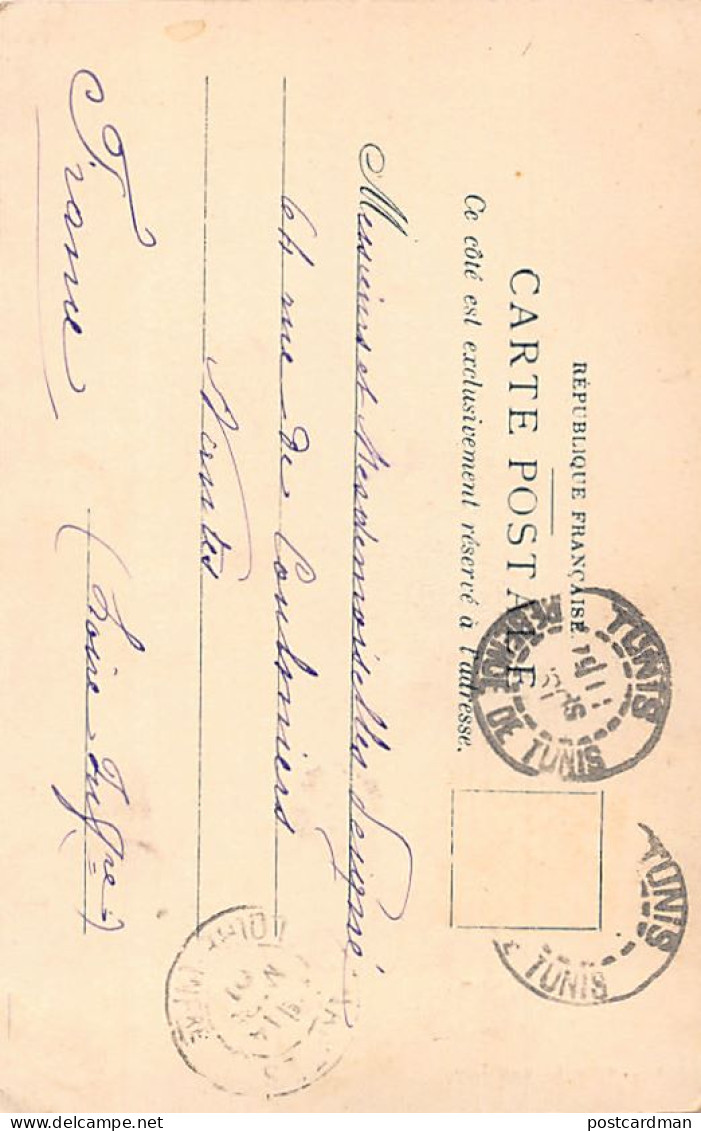 RÉPUBLIQUE FRANÇAISE
CARTE POSTALE
Ce côté est exclusivement réservé à l'adresse.
Messieurs et Mesdemoiselles
64 rue des Coulmiers
Nantes
(Loire Infre)
France
TUNIS
RÉGENCE DE TUNIS
TUNIS
E TUNIS
LOIRE INFRE
postcardman